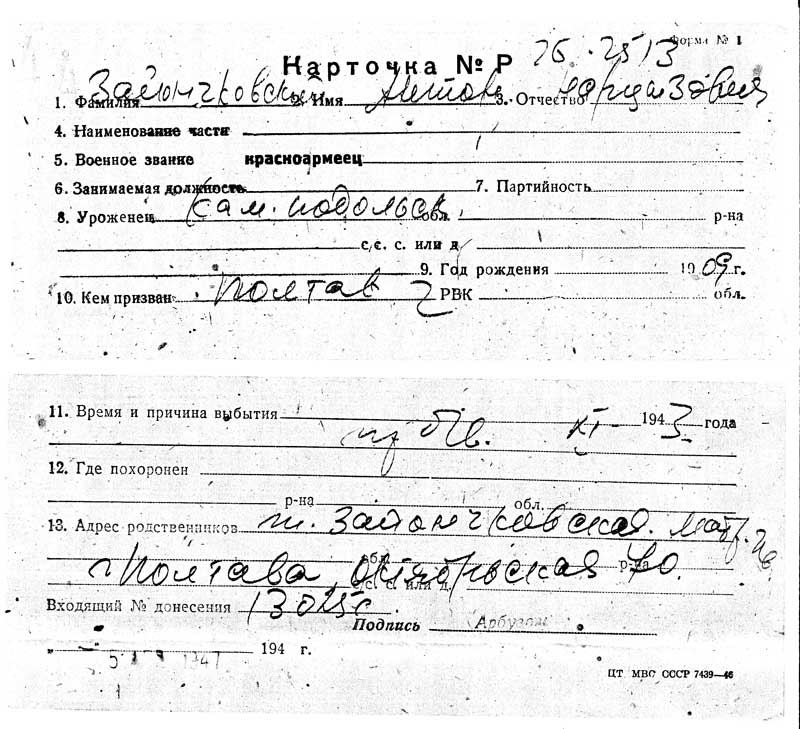 Форма № 1
Карточка № Р
1. Фамилия Зайончковский 2. Имя Антон 3. Отчество
4. Наименование части
5. Военное звание красноармеец
6. Занимаемая должность 7. Партийность
8. Уроженец Кам. подольск обл., р-на
с/с. с. или д.
9. Год рождения 1909 г.
10. Кем призван Полтав РВК обл.
11. Время и причина выбытия 1943 года
пр б/в. XI
12. Где похоронен
р-на обл.
13. Адрес родственников Зайончковская
обл. р-на
г Полтава, Октябрьская 40.
с/с. с. или д.
Входящий № донесения
Подпись Арбузов
194 г.
ЦТ МВС СССР 7439—46